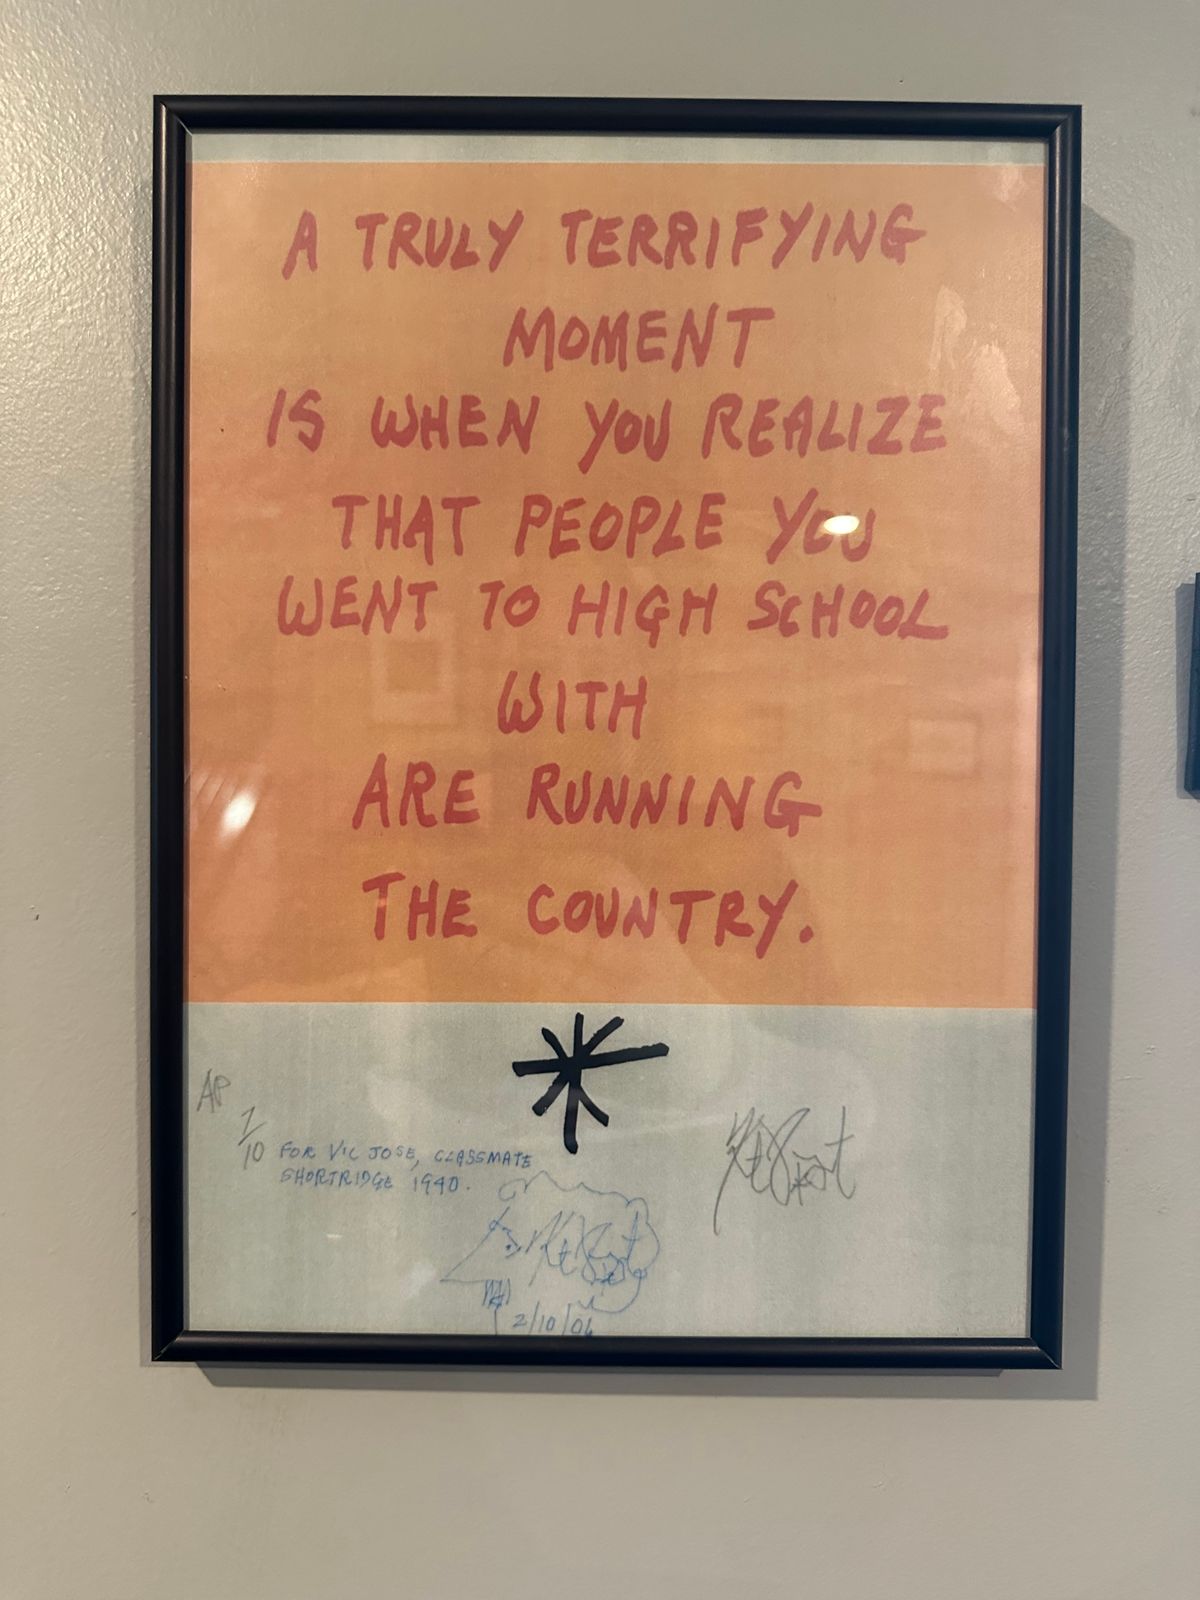 A TRULY TERRIFYING
MOMENT
IS WHEN YOU REALIZE
THAT PEOPLE YOU
WENT TO HIGH SCHOOL
WITH
ARE RUNNING
THE COUNTRY.
AP
7/10
FOR VIC JOSE, CLASSMATE
SHORTRIDGE 1940.
2/10/06